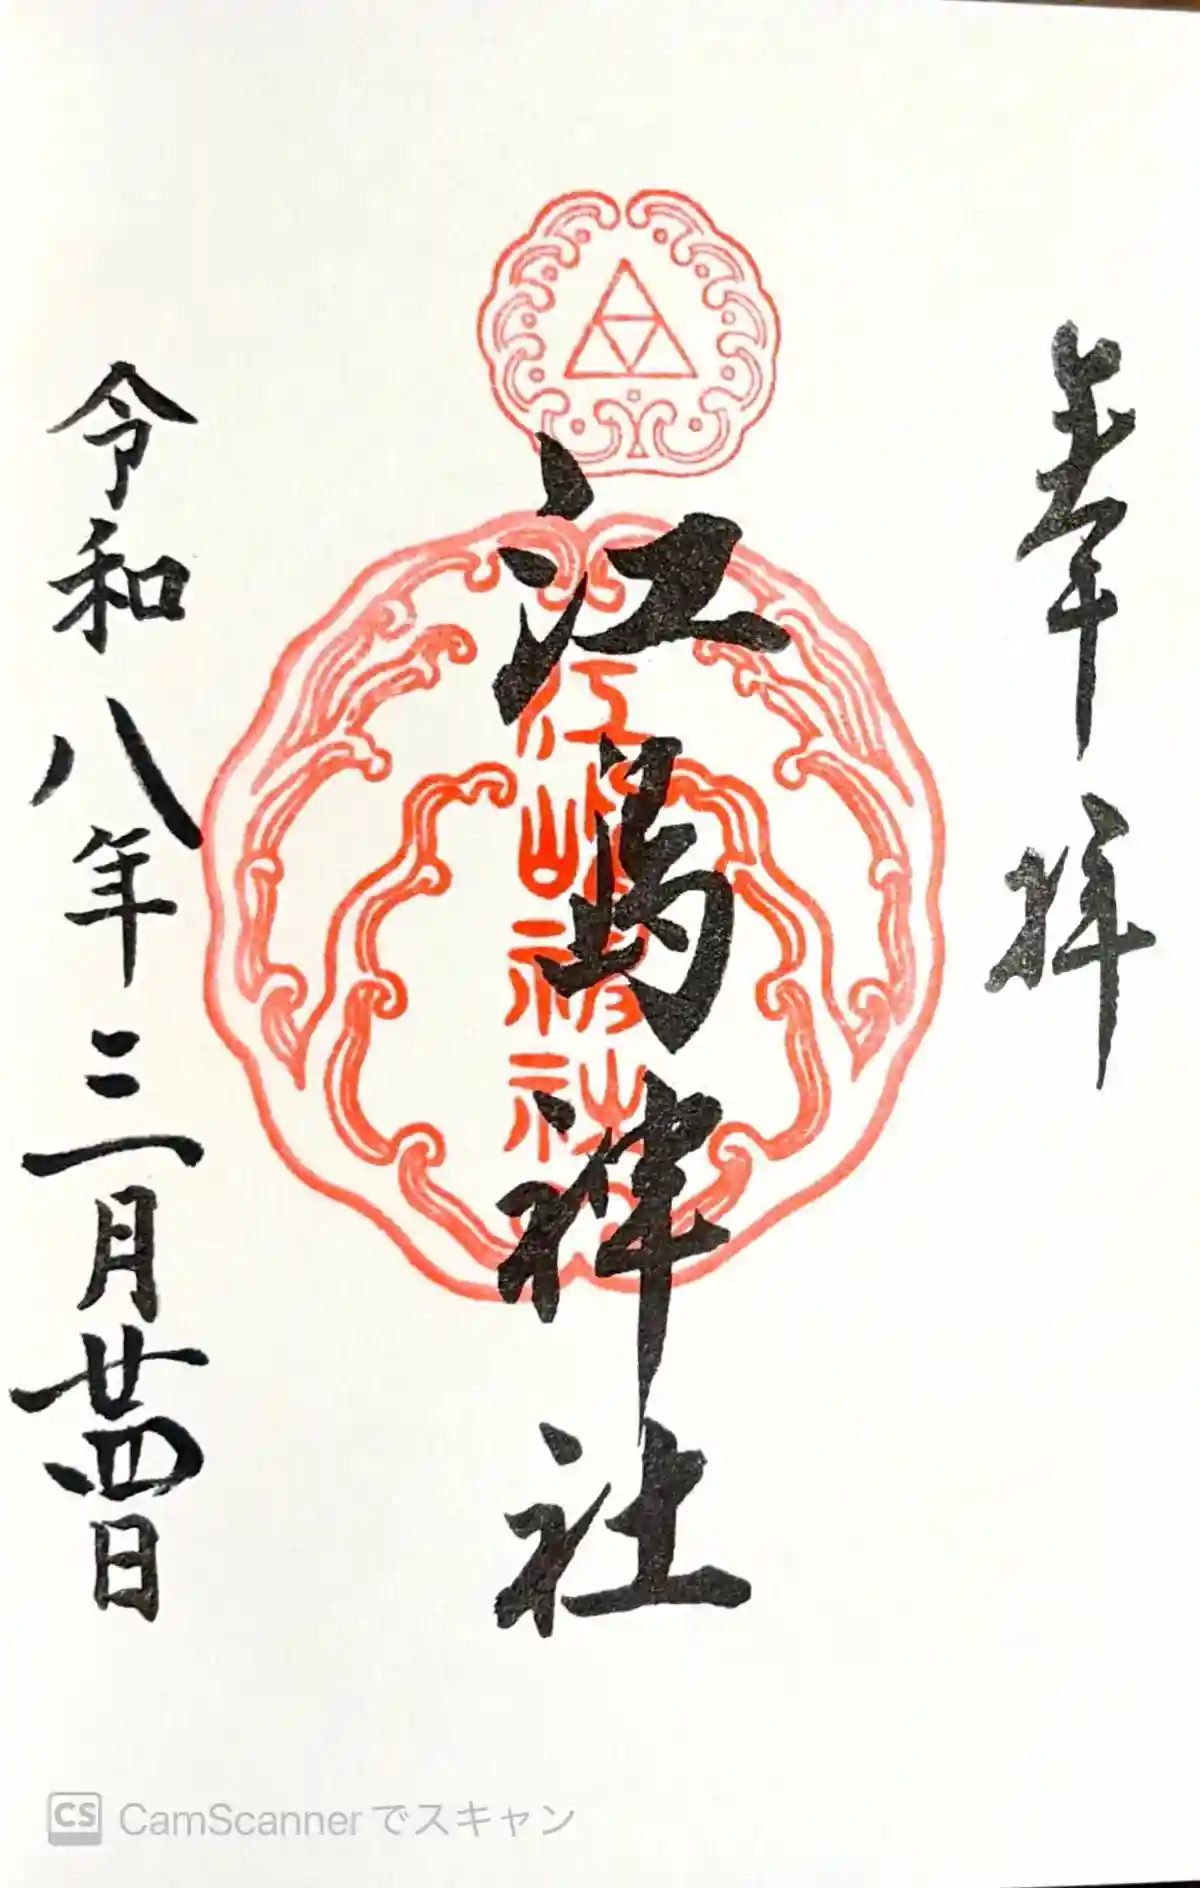 奉拝
江島神社
江嶋神社
令和八年三月廿四日
CS CamScannerでスキャン